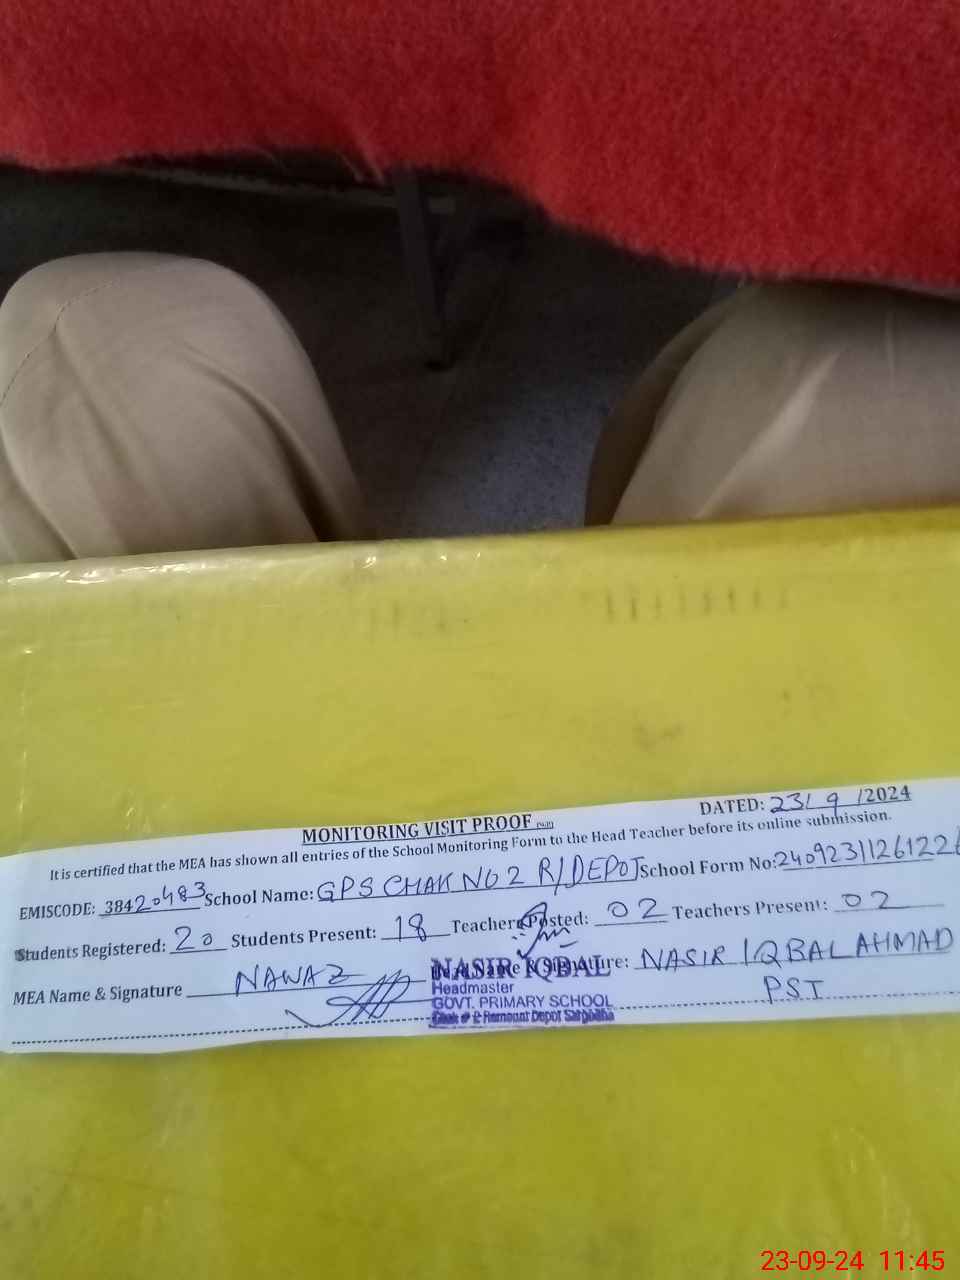 DATED: 23/ 9 /2024
MONITORING VISIT PROOF
It is certified that the MEA has shown all entries of the School Monitoring Form to the Head Teacher before its online submission.
EMISCODE: 38420483 School Name: GPS CHAK NO 2 R/DEPOT School Form No: 2409231126122
Students Registered: 20 Students Present: 18 Teachers Posted: 02 Teachers Present: 02
MEA Name & Signature NAWAZ Name & Signature: NASIR IQBAL AHMAD
PST
NASIR IQBAL
Headmaster
GOVT. PRIMARY SCHOOL
Chak # 2 Remount Depot Sargodha
23-09-24 11:45